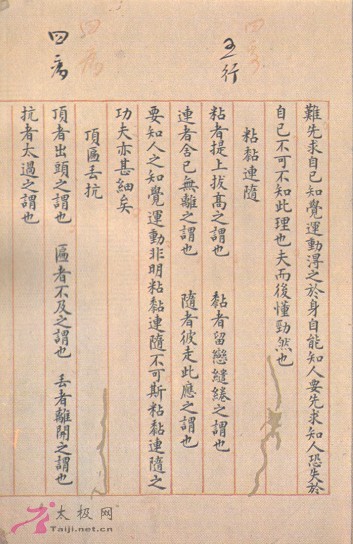 五行
四病
難先求自己知覺運動得之於身自能知人要先求知人恐失於
自己不可不知此理也夫而後懂勁然也
粘黏連隨
粘者提上拔高之謂也 黏者留戀繾綣之謂也
連者舍己無離之謂也 隨者彼走此應之謂也
要知人之知覺運動非明粘黏連隨不可斯粘黏連隨之
功夫亦甚細矣
頂匾丟抗
頂者出頭之謂也 匾者不及之謂也 丟者離開之謂也
抗者太過之謂也
太极网
Taiji.net.cn